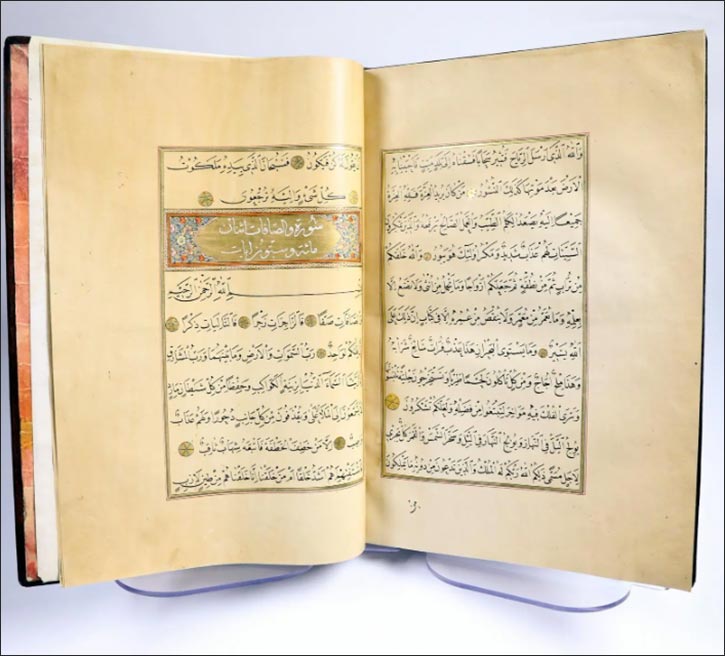 وَاللّٰهُ الَّذِى اَرْسَلَ الرِّيَاحَ فَتُثِيرُ سَحَابًا فَسُقْنَاهُ اِلٰى بَلَدٍ مَيِّتٍ فَاَحْيَيْنَا بِهِ
الْاَرْضَ بَعْدَ مَوْتِهَا كَذٰلِكَ النُّشُورُ مَنْ كَانَ يُرِيدُ الْعِزَّةَ فَلِلّٰهِ الْعِزَّةُ
جَمِيعًا اِلَيْهِ يَصْعَدُ الْكَلِمُ الطَّيِّبُ وَالْعَمَلُ الصَّالِحُ يَرْفَعُهُ وَالَّذِينَ يَمْكُرُونَ
السَّيِّئَاتِ لَهُمْ عَذَابٌ شَدِيدٌ وَمَكْرُ اُولٰئِكَ هُوَ يَبُورُ وَاللّٰهُ خَلَقَكُمْ
مِنْ تُرَابٍ ثُمَّ مِنْ نُطْفَةٍ ثُمَّ جَعَلَكُمْ اَزْوَاجًا وَمَا تَحْمِلُ مِنْ اُنْثٰى وَلَا تَضَعُ اِلَّا
بِعِلْمِهِ وَمَا يُعَمَّرُ مِنْ مُعَمَّرٍ وَلَا يُنْقَصُ مِنْ عُمُرِهِ اِلَّا فِى كِتَابٍ اِنَّ ذٰلِكَ عَلَى
اللّٰهِ يَسِيرٌ وَمَا يَسْتَوِى الْبَحْرَانِ هٰذَا عَذْبٌ فُرَاتٌ سَائِغٌ شَرَابُهُ
وَهٰذَا مِلْحٌ اُجَاجٌ وَمِنْ كُلٍّ تَاْكُلُونَ لَحْمًا طَرِيًّا وَتَسْتَخْرِجُونَ حِلْيَةً تَلْبَسُونَهَا
وَتَرَى الْفُلْكَ فِيهِ مَوَاخِرَ لِتَبْتَغُوا مِنْ فَضْلِهِ وَلَعَلَّكُمْ تَشْكُرُونَ
يُولِجُ الَّيْلَ فِى النَّهَارِ وَيُولِجُ النَّهَارَ فِى الَّيْلِ وَسَخَّرَ الشَّمْسَ وَالْقَمَرَ كُلٌّ يَجْرِى
لِاَجَلٍ مُسَمًّى ذٰلِكُمُ اللّٰهُ رَبُّكُمْ لَهُ الْمُلْكُ وَالَّذِينَ تَدْعُونَ مِنْ دُونِهِ مَا يَمْلِكُونَ
يَقُولَ لَهُ كُنْ فَيَكُونُ فَسُبْحَانَ الَّذِى بِيَدِهِ مَلَكُوتُ
كُلِّ شَىْءٍ وَاِلَيْهِ تُرْجَعُونَ
سورة والصافات
مائة وايات
بِسْمِ اللّٰهِ الرَّحْمٰنِ الرَّحِيمِ
وَالصَّافَّاتِ صَفًّا فَالزَّاجِرَاتِ زَجْرًا فَالتَّالِيَاتِ ذِكْرًا
اِلٰهَكُمْ لَوَاحِدٌ رَبُّ السَّمٰوَاتِ وَالْاَرْضِ وَمَا بَيْنَهُمَا وَرَبُّ الْمَشَارِقِ
زَيَّنَّا السَّمَاءَ الدُّنْيَا بِزِينَةٍ الْكَوَاكِبِ وَحِفْظًا مِنْ كُلِّ شَيْطَانٍ مَارِدٍ
يَسَّمَّعُونَ اِلَى الْمَلَإِ الْاَعْلٰى وَيُقْذَفُونَ مِنْ كُلِّ جَانِبٍ دُحُورًا وَلَهُمْ عَذَابٌ
وَاصِبٌ اِلَّا مَنْ خَطِفَ الْخَطْفَةَ فَاَتْبَعَهُ شِهَابٌ ثَاقِبٌ
فَاسْتَفْتِهِمْ اَهُمْ اَشَدُّ خَلْقًا اَمْ مَنْ خَلَقْنَا اِنَّا خَلَقْنَاهُمْ مِنْ طِينٍ لَازِبٍ